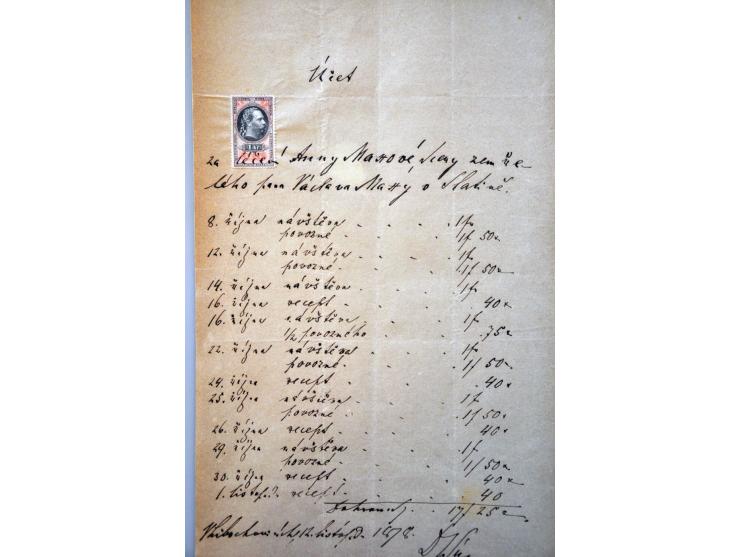 Účet
za léčení Anny Maxové dcery zemře-
lého pana Václava Maxy v Slatině.
8. října návštěva . . . 1 f
povozné . . . 1 f 50 x
12. října návštěva . . . 1 f
povozné . . . 1 f 50 x
14. října návštěva . . . 1 f
16. října recept . . . 40 x
16. října návštěva . . . 1 f
1/2 povozného . . . 75 x
22. října návštěva . . . 1 f
povozné . . . 1 f 50 x
24. října recept . . . 40 x
25. října návštěva . . . 1 f
povozné . . . 1 f 50 x
26. října recept . . . 40 x
29. října návštěva . . . 1 f
povozné . . . 1 f 50 x
30. října recept . . . 40 x
1. listop.d. recept . . . 40
Dohromady . 17 f 25 x
12. listop.d. 1878.